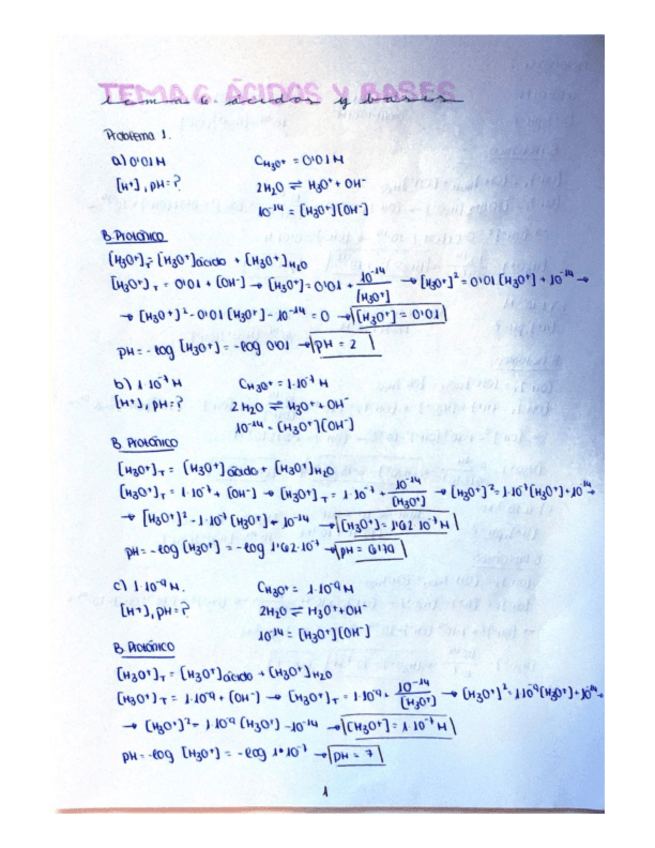 TEMA 6. ÁCIDOS Y BASES
tema 6. ácidos y bases
Problema 1.
a) 0'01 M    C_H₃O⁺ = 0'01 M
[H⁺], pH = ?    2H₂O ⇌ H₃O⁺ + OH⁻
10⁻¹⁴ = [H₃O⁺][OH⁻]
B. PROTÓNICO
[H₃O⁺]_T = [H₃O⁺]ácido + [H₃O⁺]_H₂O
[H₃O⁺]_T = 0'01 + [OH⁻] → [H₃O⁺] = 0'01 + 10⁻¹⁴/[H₃O⁺] → [H₃O⁺]² = 0'01 [H₃O⁺] + 10⁻¹⁴ →
→ [H₃O⁺]² - 0'01 [H₃O⁺] - 10⁻¹⁴ = 0 → [H₃O⁺] = 0'01
pH = - log [H₃O⁺] = - log 0'01 → pH = 2
b) 1·10⁻⁷ M    C_H₃O⁺ = 1·10⁻⁷ M
[H⁺], pH = ?    2H₂O ⇌ H₃O⁺ + OH⁻
10⁻¹⁴ = [H₃O⁺][OH⁻]
B. PROTÓNICO
[H₃O⁺]_T = [H₃O⁺]ácido + [H₃O⁺]_H₂O
[H₃O⁺]_T = 1·10⁻⁷ + [OH⁻] → [H₃O⁺]_T = 1·10⁻⁷ + 10⁻¹⁴/[H₃O⁺] → [H₃O⁺]² = 1·10⁻⁷ [H₃O⁺] + 10⁻¹⁴ →
→ [H₃O⁺]² - 1·10⁻⁷ [H₃O⁺] - 10⁻¹⁴ → [H₃O⁺] = 1'62·10⁻⁷ M
pH = - log [H₃O⁺] = - log 1'62·10⁻⁷ → pH = 6'79
c) 1·10⁻⁹ M.    C_H₃O⁺ = 1·10⁻⁹ M
[H⁺], pH = ?    2H₂O ⇌ H₃O⁺ + OH⁻
10⁻¹⁴ = [H₃O⁺][OH⁻]
B. PROTÓNICO
[H₃O⁺]_T = [H₃O⁺]ácido + [H₃O⁺]_H₂O
[H₃O⁺]_T = 1·10⁻⁹ + [OH⁻] → [H₃O⁺]_T = 1·10⁻⁹ + 10⁻¹⁴/[H₃O⁺] → [H₃O⁺]² = 1·10⁻⁹ [H₃O⁺] + 10⁻¹⁴ →
→ [H₃O⁺]² = 1·10⁻⁹ [H₃O⁺] - 10⁻¹⁴ → [H₃O⁺] = 1·10⁻⁷ M
pH = - log [H₃O⁺] = - log 1·10⁻⁷ → pH = 7
1